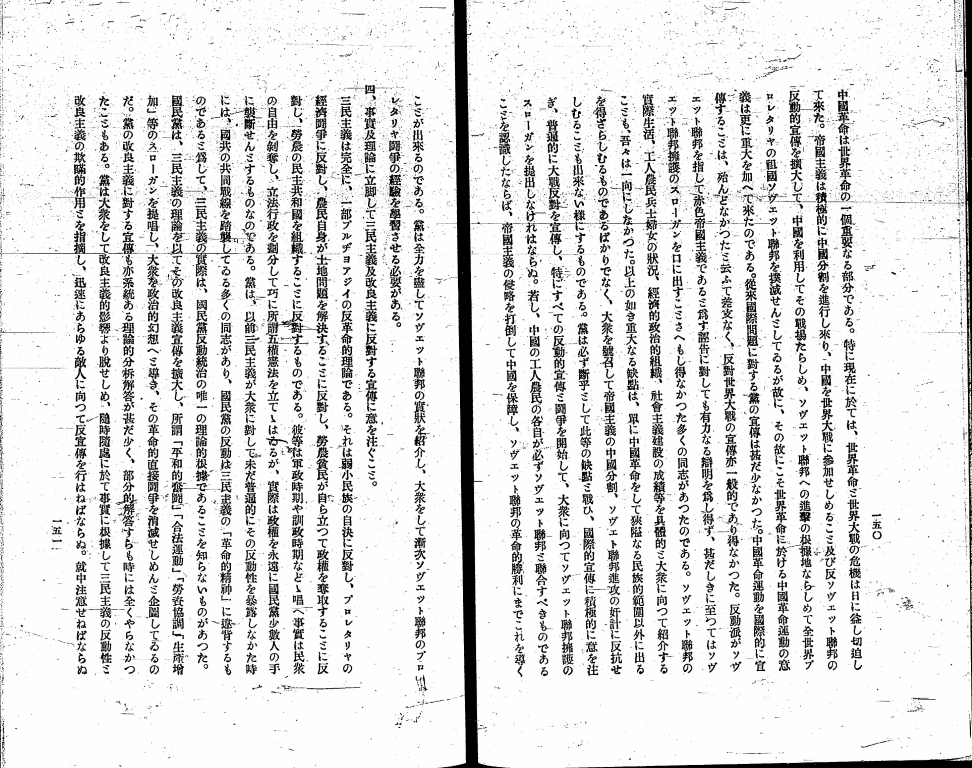 中國革命は世界革命の一個重要なる部分である。特に現在に於ては、世界革命ミ世界大戰の危機は日に益し切迫し
て來た。帝國主義は積極的に中國分割を進行し來り、中國を世界大戰に參加せしめるこミ及び反ソヴェット聯邦の
反動的宣傳を擴大して、中國を利用してその戰場たらしめ、ソヴェット聯邦への進擊の根據地ならしめて全世界プ
ロレタリヤの祖國ソヴェット聯邦を撲滅せんミしてゐるが故に、その故にこそ世界革命に於ける中國革命運動の意
義は更に重大を加へて來たのである。從來國際問題に對する黨の宣傳は甚だ少なかつた。中國革命運動を國際的に宣
傳するこミは、殆んどなかつたミ云ふて差支なく、反對世界大戰の宣傳亦一般的であり得なかつた。反動派がソヴ
エット聯邦を指して赤色帝國主義であるミ爲す誣告に對しても有力なる辯明を爲し得ず、甚だしきに至つてはソヴ
エット聯邦擁護のスローガンを口に出すこミさへもし得なかつた多くの同志があつたのである。ソヴェット聯邦の
實際生活、工人農民兵士婦女の狀況、經濟的政治的組織、社會主義建設の成績等を具體的ミ大衆に向つて紹介する
こミも、吾々は一向にしなかつた。以上の如き重大なる缺點は、單に中國革命をして狹隘なる民族的範圍以外に出る
を得ざらしむるものであるばかりでなく、大衆を號召して帝國主義の中國分割、ソヴェット聯邦進攻の奸計に反抗せ
しむるこミも出來ない樣にするものである。黨は必ず斷乎ミして此等の缺點ミ戰ひ、國際的宣傳に積極的に意を注
ぎ、普遍的に大戰反對を宣傳し、特にすべての反動的宣傳ミ鬪爭を開始して、大衆に向つてソヴェット聯邦擁護の
スローガンを提出しなければならぬ。若し、中國の工人農民の各自が必ずソヴェット聯邦ミ聯合すべきものである
こミを認識したならば、帝國主義の侵略を打倒して中國を保障し、ソヴェット聯邦の革命的勝利にまでこれを導く
一五〇
こミが出來るのである。黨は全力を盡してソヴェット聯邦の實狀を紹介し、大衆をして漸次ソヴェット聯邦のプロ
レタリヤ鬪爭の經驗を學習させる必要がある。
四、事實及理論に立脚して三民主義及改良主義に反對する宣傳に意を注ぐこミ。
三民主義は完全に、一部ブルヂヨアジイの反革命的理論である。それは弱小民族の自決に反對し、プロレタリヤの
經濟鬪爭に反對し、農民自身が土地問題を解決するこミに反對し、勞農貧民が自ら立つて政權を奪取するこミに反
對し、勞農の民主共和國を組織するこミに反對するものである。彼等は軍政時期や訓政時期などゝ唱へ事實は民衆
の自由を剝奪し、立法行政を劃分して巧に所謂五權憲法を立てゝはゐるが、實際は政權を永遠に國民黨少數人の手
に壟斷せんミするものなのである。黨は、以前三民主義が大衆に對して未だ普遍的にその反動性を暴露しなかた時
には、國共の共同戰線を踏襲してゐる多くの同志があり、國民黨の反動は三民主義の「革命的精神」に違背するも
のであるミ爲して、三民主義の實際は、國民黨反動統治の唯一の理論的根據であるこミを知らないものがあつた。
國民黨は、三民主義の理論を以てその改良主義宣傳を擴大し、所謂「平和的奮鬪」「合法運動」「勞資協調」「生產增
加」等のスローガンを提唱し、大衆を政治的幻想へミ導き、その革命的直接鬪爭を消滅せしめんミ企圖してゐるの
だ。黨の改良主義に對する宣傳も亦系統ある理論的分析解答が甚だ少く、部分的解答すらも時には全くやらなかつ
たこミもある。黨は大衆をして改良主義的影響より脫せしめ、隨時隨處に於て事實に根據して三民主義の反動性ミ
改良主義の欺瞞的作用ミを指摘し、迅速にあらゆる敵人に向つて反宣傳を行はねばならぬ。就中注意せねばならぬ
一五一